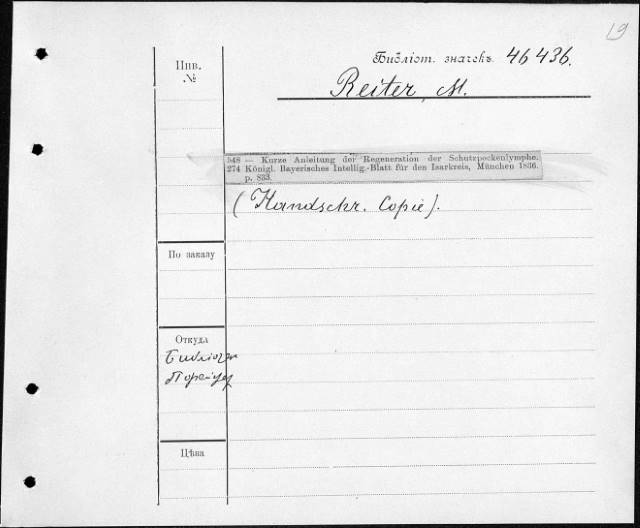 19
Инв.
№
Библіот. значекъ 46436.
Reiter, M.
548 — Kurze Anleitung der Regeneration der Schutzpockenlymphe.
274 Königl. Bayerisches Intellig.-Blatt für den Isarkreis, München 1836.
p. 833.
(Handschr. Copie).
По заказу
Откуда
Цѣна